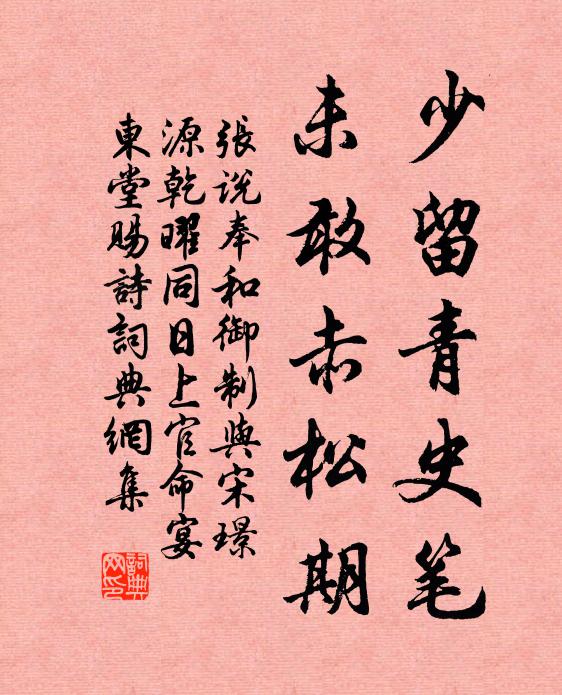 少留青史笔
未敢赤松期
張说奉和御制與宋璟
源乾曜同日上官命宴
東堂賜詩詞典網集
詞典网印